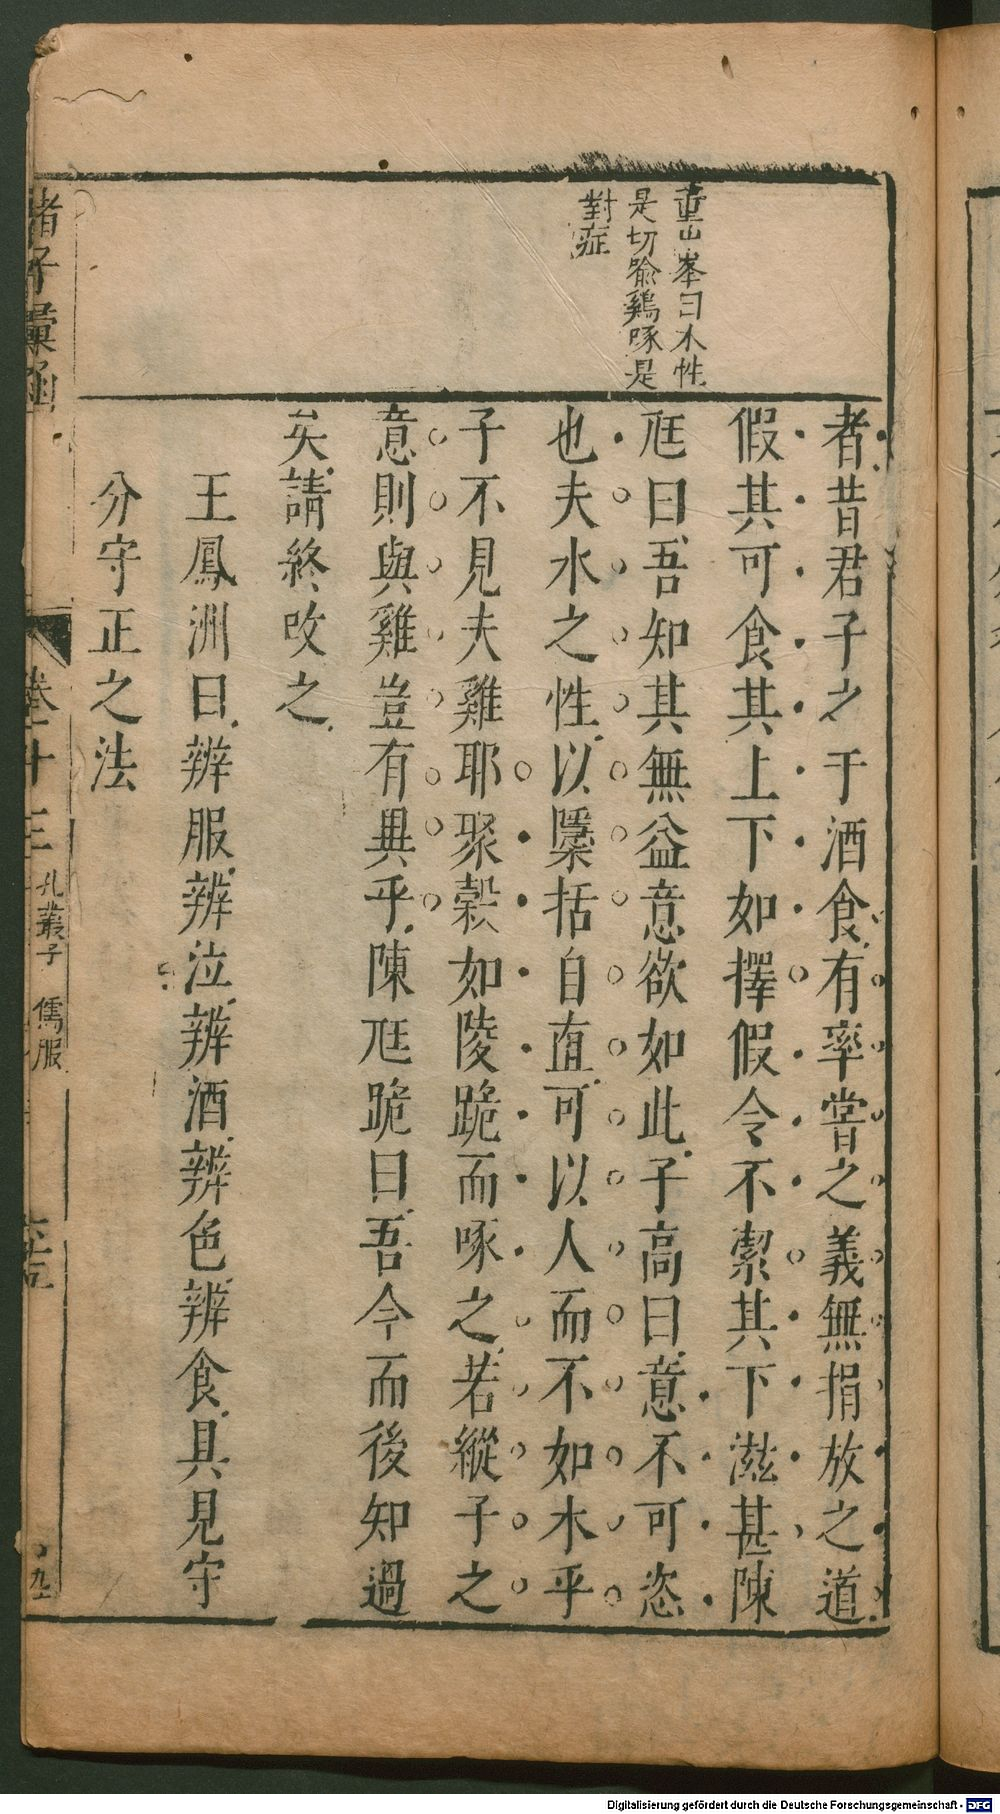 重山峯曰木性
是切喻鷄啄是
對症
者昔君子之于酒食有率嘗之義無捐放之道
假其可食其上下如擇假令不潔其下滋甚陳
尫曰吾知其無益意欲如此子高曰意不可恣
也夫木之性以檃括自直可以人而不如木乎
子不見夫雞耶聚穀如陵跪而啄之若縱子之
意則與雞豈有異乎陳尫跪曰吾今而後知過
矣請終改之
王鳳洲曰辨服辨泣辨酒辨色辨食具見守
分守正之法
諸子彙函
卷十三
孔叢子 儒服
九
Digitalisierung gefördert durch die Deutsche Forschungsgemeinschaft - DFG